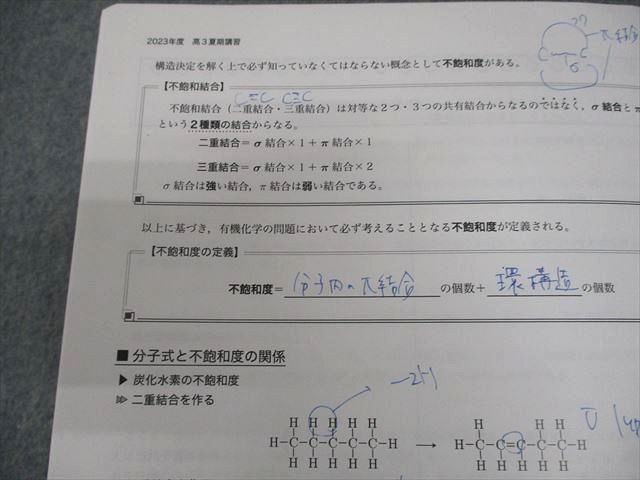 2023年度 高3夏期講習
構造決定を解く上で必ず知っていなくてはならない概念として不飽和度がある。
【不飽和結合】
C=C C≡C
不飽和結合(二重結合・三重結合)は対等な2つ・3つの共有結合からなるのではなく,σ結合とπ
という2種類の結合からなる。
二重結合=σ結合×1+π結合×1
三重結合=σ結合×1+π結合×2
σ結合は強い結合,π結合は弱い結合である。
C C
σ
π結合
以上に基づき,有機化学の問題において必ず考えることとなる不飽和度が定義される。
【不飽和度の定義】
不飽和度=分子内のπ結合の個数+環構造の個数
■分子式と不飽和度の関係
▶炭化水素の不飽和度
二重結合を作る
−2H
H H H H H
H−C−C−C−C−C−H
H H H H H
→
H H H
H−C−C=C−C−C−H
H H H H H